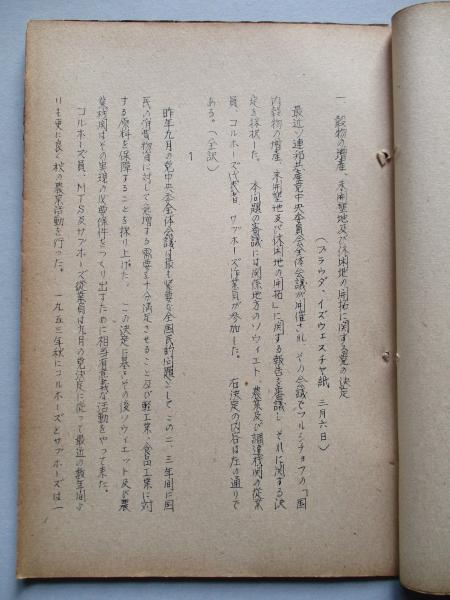 一 穀物の増産、未開墾地及び休閑地の開拓に関する党の決定
(プラウダ、イズヴェスチヤ紙 三月六日)
最近ソ連邦共産党中央委員会全体会議が開催され、その会議でフルシチョフの「国
内穀物の増産、未開墾地及び休閑地の開拓」に関する報告を審議し、それに関する決
定を採択した。 本問題の審議には関係地方のソヴィエト、農業及び調達機関の従業
員、コルホーズ代表者、サブホーズ従業員が参加した。 右決定の内容は左の通りで
ある。(全訳)
1
昨年九月の党中央委全体会議は最も緊要な全国民的課題として、この二、三年間に国
民の消費物資に対して急増する需要を十分満足させること及び軽工業、食品工業に対
する原料を保障することを採り上げた。 この決定に基きその後ソヴィエット及び農
業機関はその実現の必要條件をつくり出すために相当有意義な活動をやって来た。
コルホーズ員、MTS及サブホーズ従業員は九月の党決定に従って最近の数年間よ
りも更に良く秋の農業活動を行った。 一九五三年秋にコルホーズとサブホーズは一